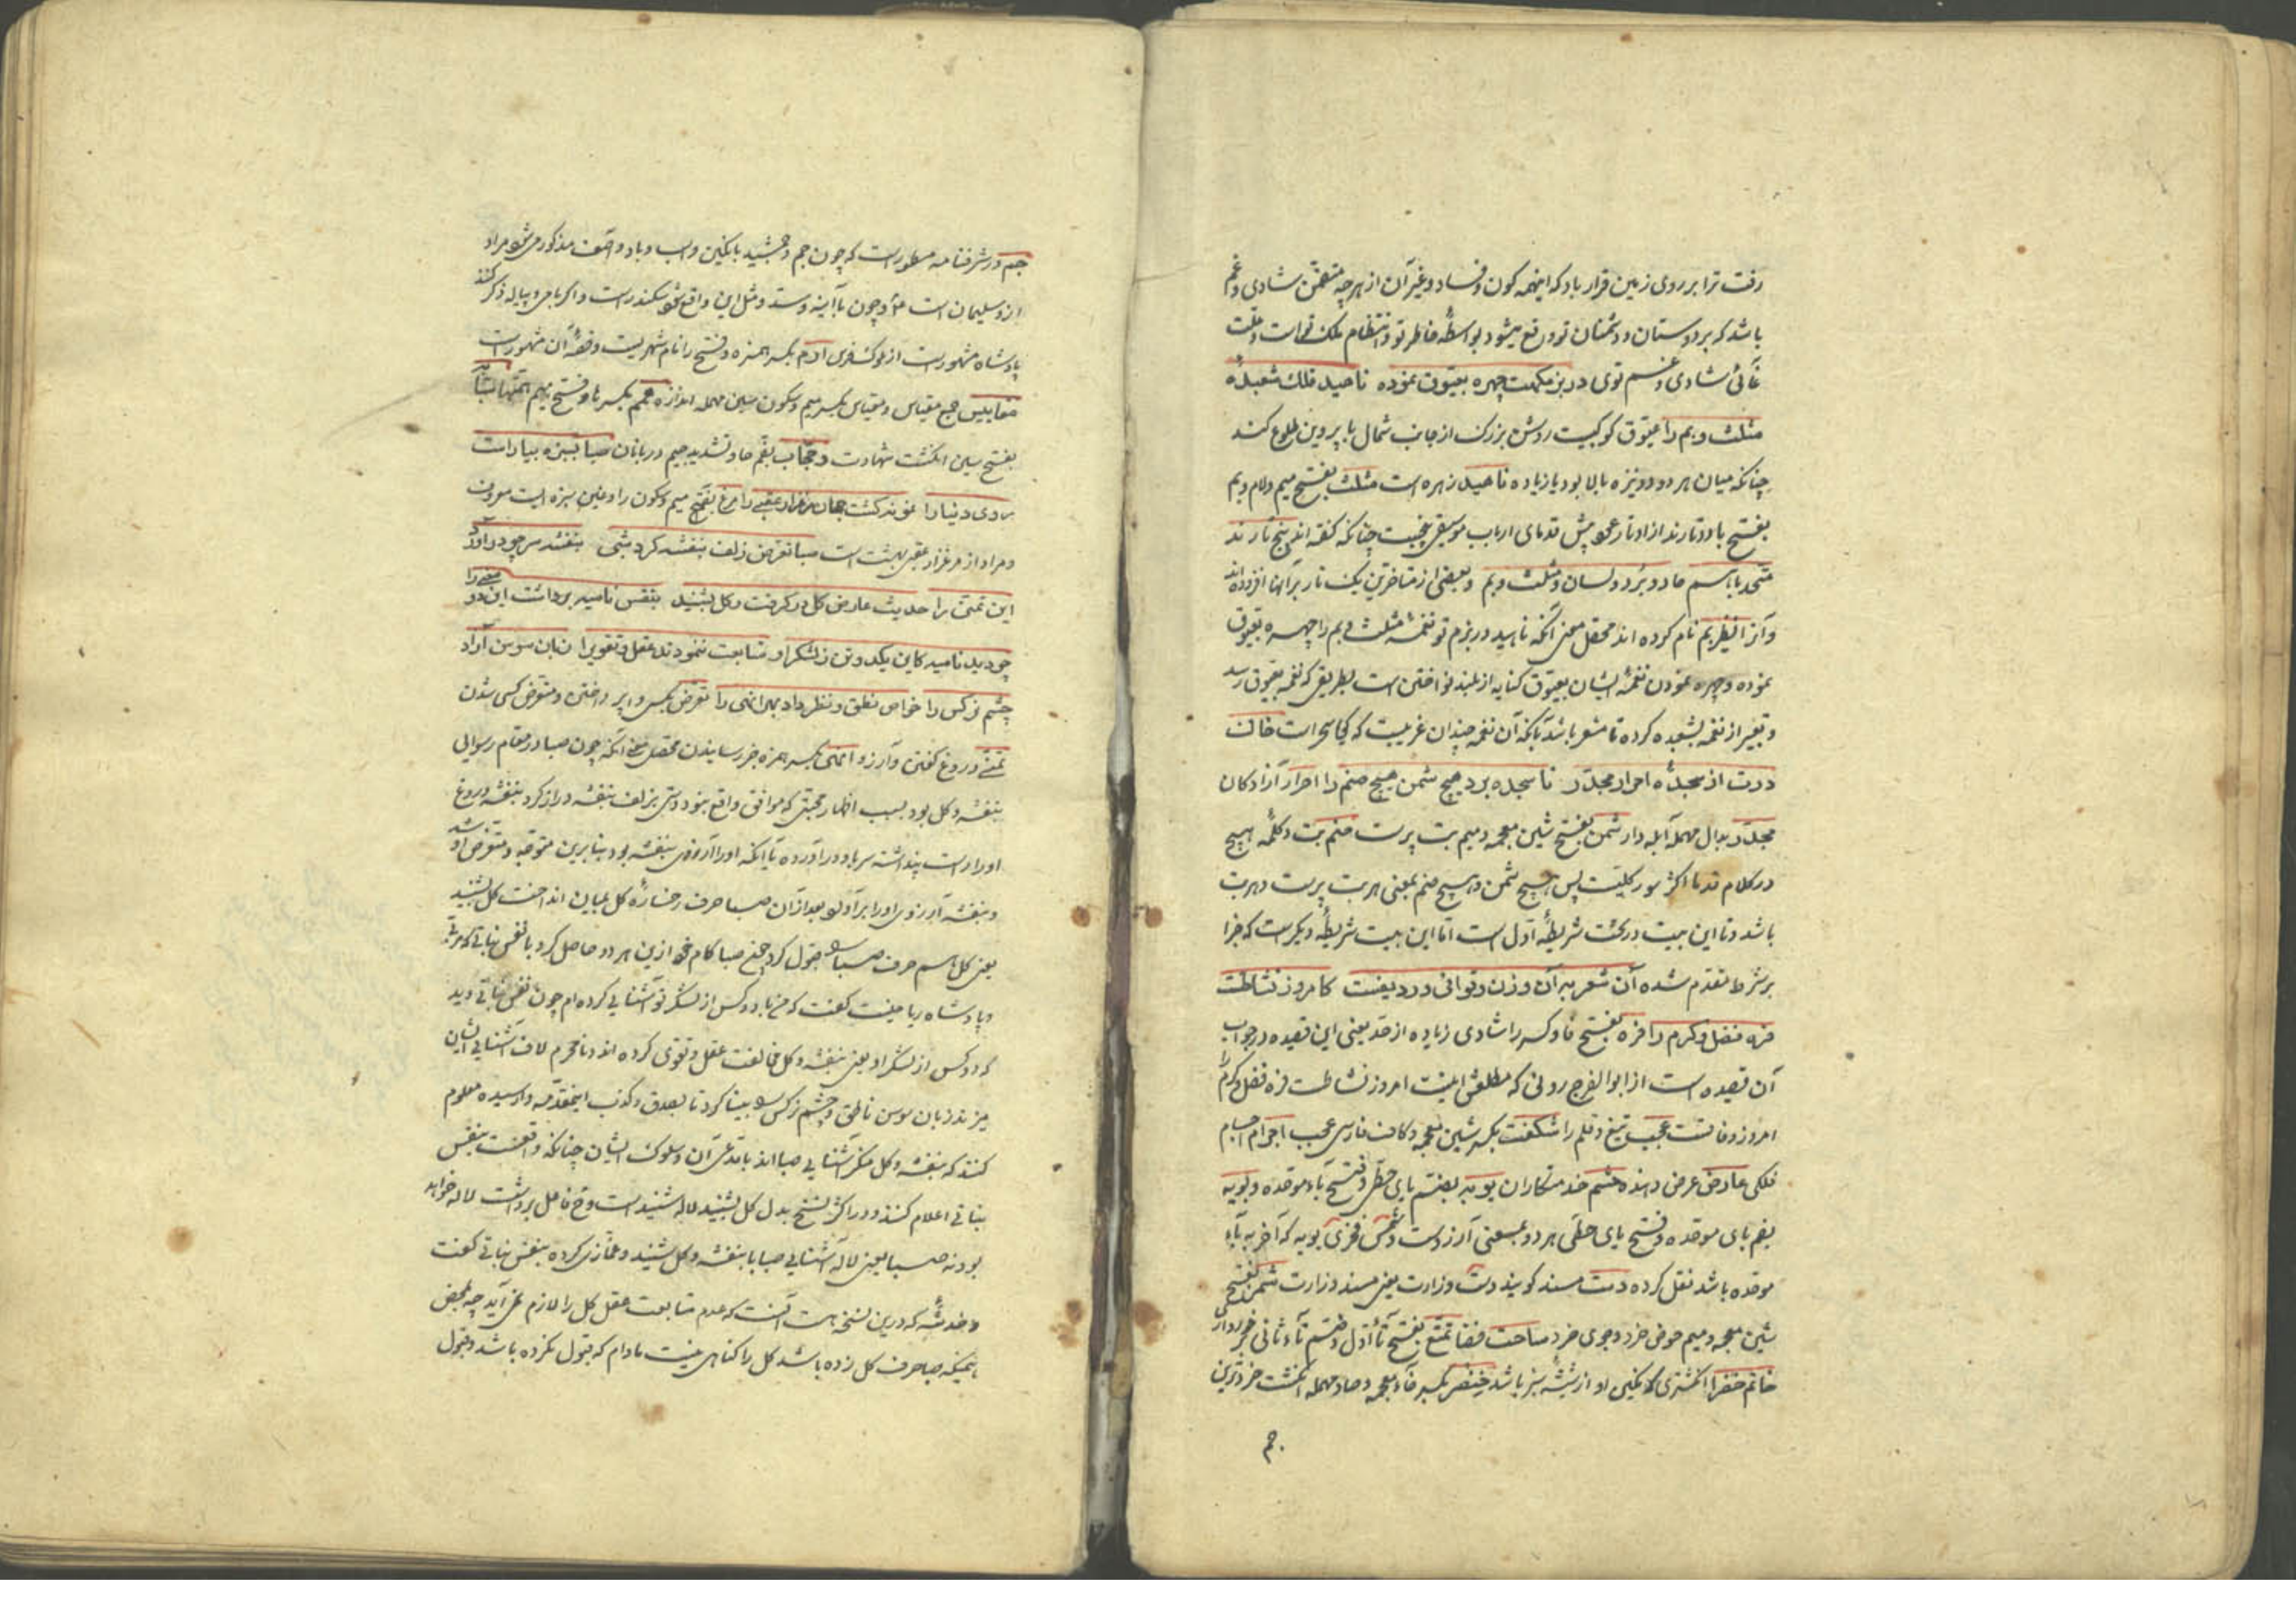 رفت ترا بر روی زمین قرار باد که اینهمه کون و فساد و غیر آن از هر چه متضمن شادی و غم
باشد که بر دوستان و دشمنان تو واقع میشود بواسطهٔ خاطر تو و انتظام ملک تو است و علت
غائی شادی و غم توی در بزمگهت چهره بعیوق نموده ناهید فلک شعبدهٔ
مثلث و بم را عیوق کوکبیست روشن بزرک از جانب شمال با پروین طلوع کند
چنانکه میان هر دو دو نیزه بالا بود یا زیاده ناهید زهره است مثلث بفتح میم و لام و بم
بفتح با دو تارند از اوتار عود پیش قدمای ارباب موسیقی پنجست چنانکه گفته اند پنج تارند
متحد با اسم حاد و زیر و لسان و مثلث و بم و بعضی از متاخرین یک تار بر آنها افزوده‌اند
و آنرا نام کرده اند محصل معنی آنکه ناهید در بزم تو نغمهٔ مثلث و بم را چهره بعیوق
نموده و چهره نمودن نغمهٔ ایشان بعیوق کنایه از بلند نواختن است بطریقی که نغمه بعیوق رسد
و تعبیر از نغمه بشعبده کرده تا مشعر باشد بآنکه آن نغمه چندان غریبست که گویا سحر است خاک
درت از سجدهٔ احرار مجدّر تا سجده برد هیچ شمن هیچ صنم را احرار آزادکان
مجدّر بدال مهمله آبله دار شمن بفتح شین معجمه و میم بت پرست صنم بت و کلمهٔ هیچ
در کلام قدما اکثر سور کلیت پس هیچ شمن و هیچ صنم بمعنی هر بت پرست و هر بت
باشد و تا این بیت در تحت شریطهٔ اول است اما این بیت شریطهٔ دیگر است که جزا
بر شرط مقدم شده آن شعر بر آن وزن و قوافی و ردیفست کامروز نشاطت
فره فضل و کرم را فره بفتح فا و کسر را شادی زیاده از حد یعنی این قصیده در جواب
آن قصیده است از ابوالفرج رونی که مطلعش اینست امروز نشاطست فره فضل و کرم را
امروز وفاقست عجب تیغ و قلم را شگفت بکسر شین معجمه و کاف فارسی عجب اجرام اجسام
فلکی عارض عرض دهنده حشم خدمتکاران بویه بضم بای حطی و فتح باء موحده و بویه
بضم بای موحده و فتح یای حطی هر دو بمعنی آرزوست و شمس فخری بویه که آخر به باء
موحده باشد نقل کرده دست مسند گویند دست وزارت یعنی مسند وزارت شمن بفتح
شین معجمه و میم حوض خرد و جوی خرد ساحت فضا تمتع بفتح تاء اول و ضم تاء ثانی
خاتم خضرا انگشتری که نکینی او از شیشهٔ سبز باشد خنصر بکسر خاء معجمه و صاد مهمله انگشت خردترین
جم
جم در شرفنامه مسطور است که چون جم و جمشید با نکین و اسب و باد و آصف مذکور میشود مراد
ازو سلیمان است ع و چون با آینه و سد و مثل این واقع شود سکندر است و اگر با جم و پیاله ذکر کنند
پادشاه مشهور است از ملوک فرس ارم بکسر همزه و فتح را نام شهریست و قصهٔ آن مشهور است
مقاییس جمع مقیاس و مقیاس بکسر میم و سکون سین مهمله اندازه همم بکسر ها و فتح میم
بفتح سین انگشت شهادت حجاب بضم حا و تشدید جیم دربانان صبا سبزه بیاراست
دی دنیا را نمونه گشت جهان مرغزار عقبی را مرغ بفتح میم و سکون را و غین سبزه ایست معروف
و مراد از مرغزار عقبی بهشت است صبا تعرض زلف بنفشه کرد شبی بنفشه سر چو در آورد
این تمنی را حدیث عارض گل در گرفت و گل بشنید بنفس نامیه برداشت این دو معنی را
چو دید نامیه کاین یک دو تن ز لشکر او متابعت ننمودند عقل و تقوی را زبان سوسن آزاد
چشم نرگس را خواص نطق و نظر داد بهر انهی را تعرض بکسی وا پرداختن و متعرض کسی شدن
تمنی دروغ گفتن و آرزو انهی بکسر همزه خبر رسانیدن محصل معنی آنکه چون صبا در مقام رسوایی
بنفشه و گل بود بسبب اظهار محبتی که موافق واقع نبود دستی بزلف بنفشه دراز کرد بنفشه دروغ
او را راست پنداشته سر باو در آورده یا آنکه او را آرزوی بنفشه بود بنابرین متوجه و متعرض او شد
و بنفشه آرزوی او را برآورد بعد از آن صبا حرف رخسارهٔ گل بمیان انداخت گل بشنید
یعنی گل هم حرف صبا را قبول کرد چون صبا کام خود ازین هر دو حاصل کرد با نفس نباتی که مربی
و پادشاه ریاحینست گفت که من با دو کس از لشکر تو آشنایی کرده ام چون نفس نباتی دید
که دو کس از لشکر او یعنی بنفشه و گل مخالفت عقل و تقوی کرده اند و نامحرم لاف آشنایی ایشان
میزند زبان سوسن ناطق و چشم نرگس را بینا کرد تا بصدق و کذب اینمقدمه وارسیده معلوم
کنند که بنفشه و گل منکر آشنایی صبا اند یا مدعی آن و سلوک ایشان چنانکه واقعست بنفس
نباتی اعلام کنند و در اکثر نسخ بدل گل بشنید لاله شنید است و فاعل برداشت لاله خواهد
بود نه صبا یعنی لاله آشنایی صبا با بنفشه و گل شنید و غمازی کرده بنفس نباتی گفت
و خدشهٔ که درین نسخه هست آنست که عدم متابعت عقل گل را لازم نمی آید چه بمحض
اینکه صبا حرف گل زده باشد گل را گناهی نیست مادام که قبول نکرده باشد و قبول